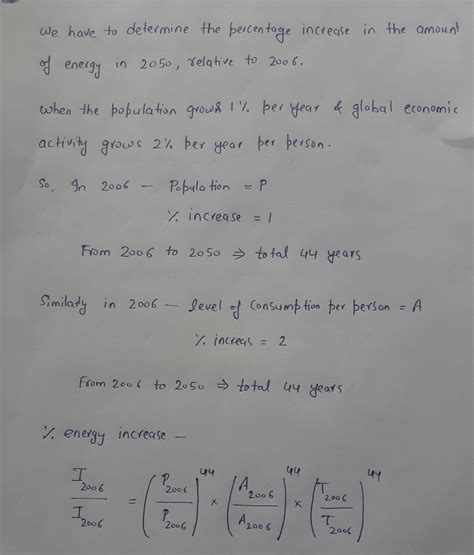 We have to determine the percentage increase in the amount
of energy in 2050, relative to 2006.
When the population growth 1% per year & global economic
activity grows 2% per year per person.
So, In 2006 — Population = P
% increase = 1
From 2006 to 2050 ⇒ total 44 years
Similarly in 2006 — level of consumption per person = A
% increas = 2
From 2006 to 2050 ⇒ total 44 years
% energy increase —
I2006 / I2006 = (P2006 / P2006)^44 × (A2006 / A2006)^44 × (T2006 / T2006)^44